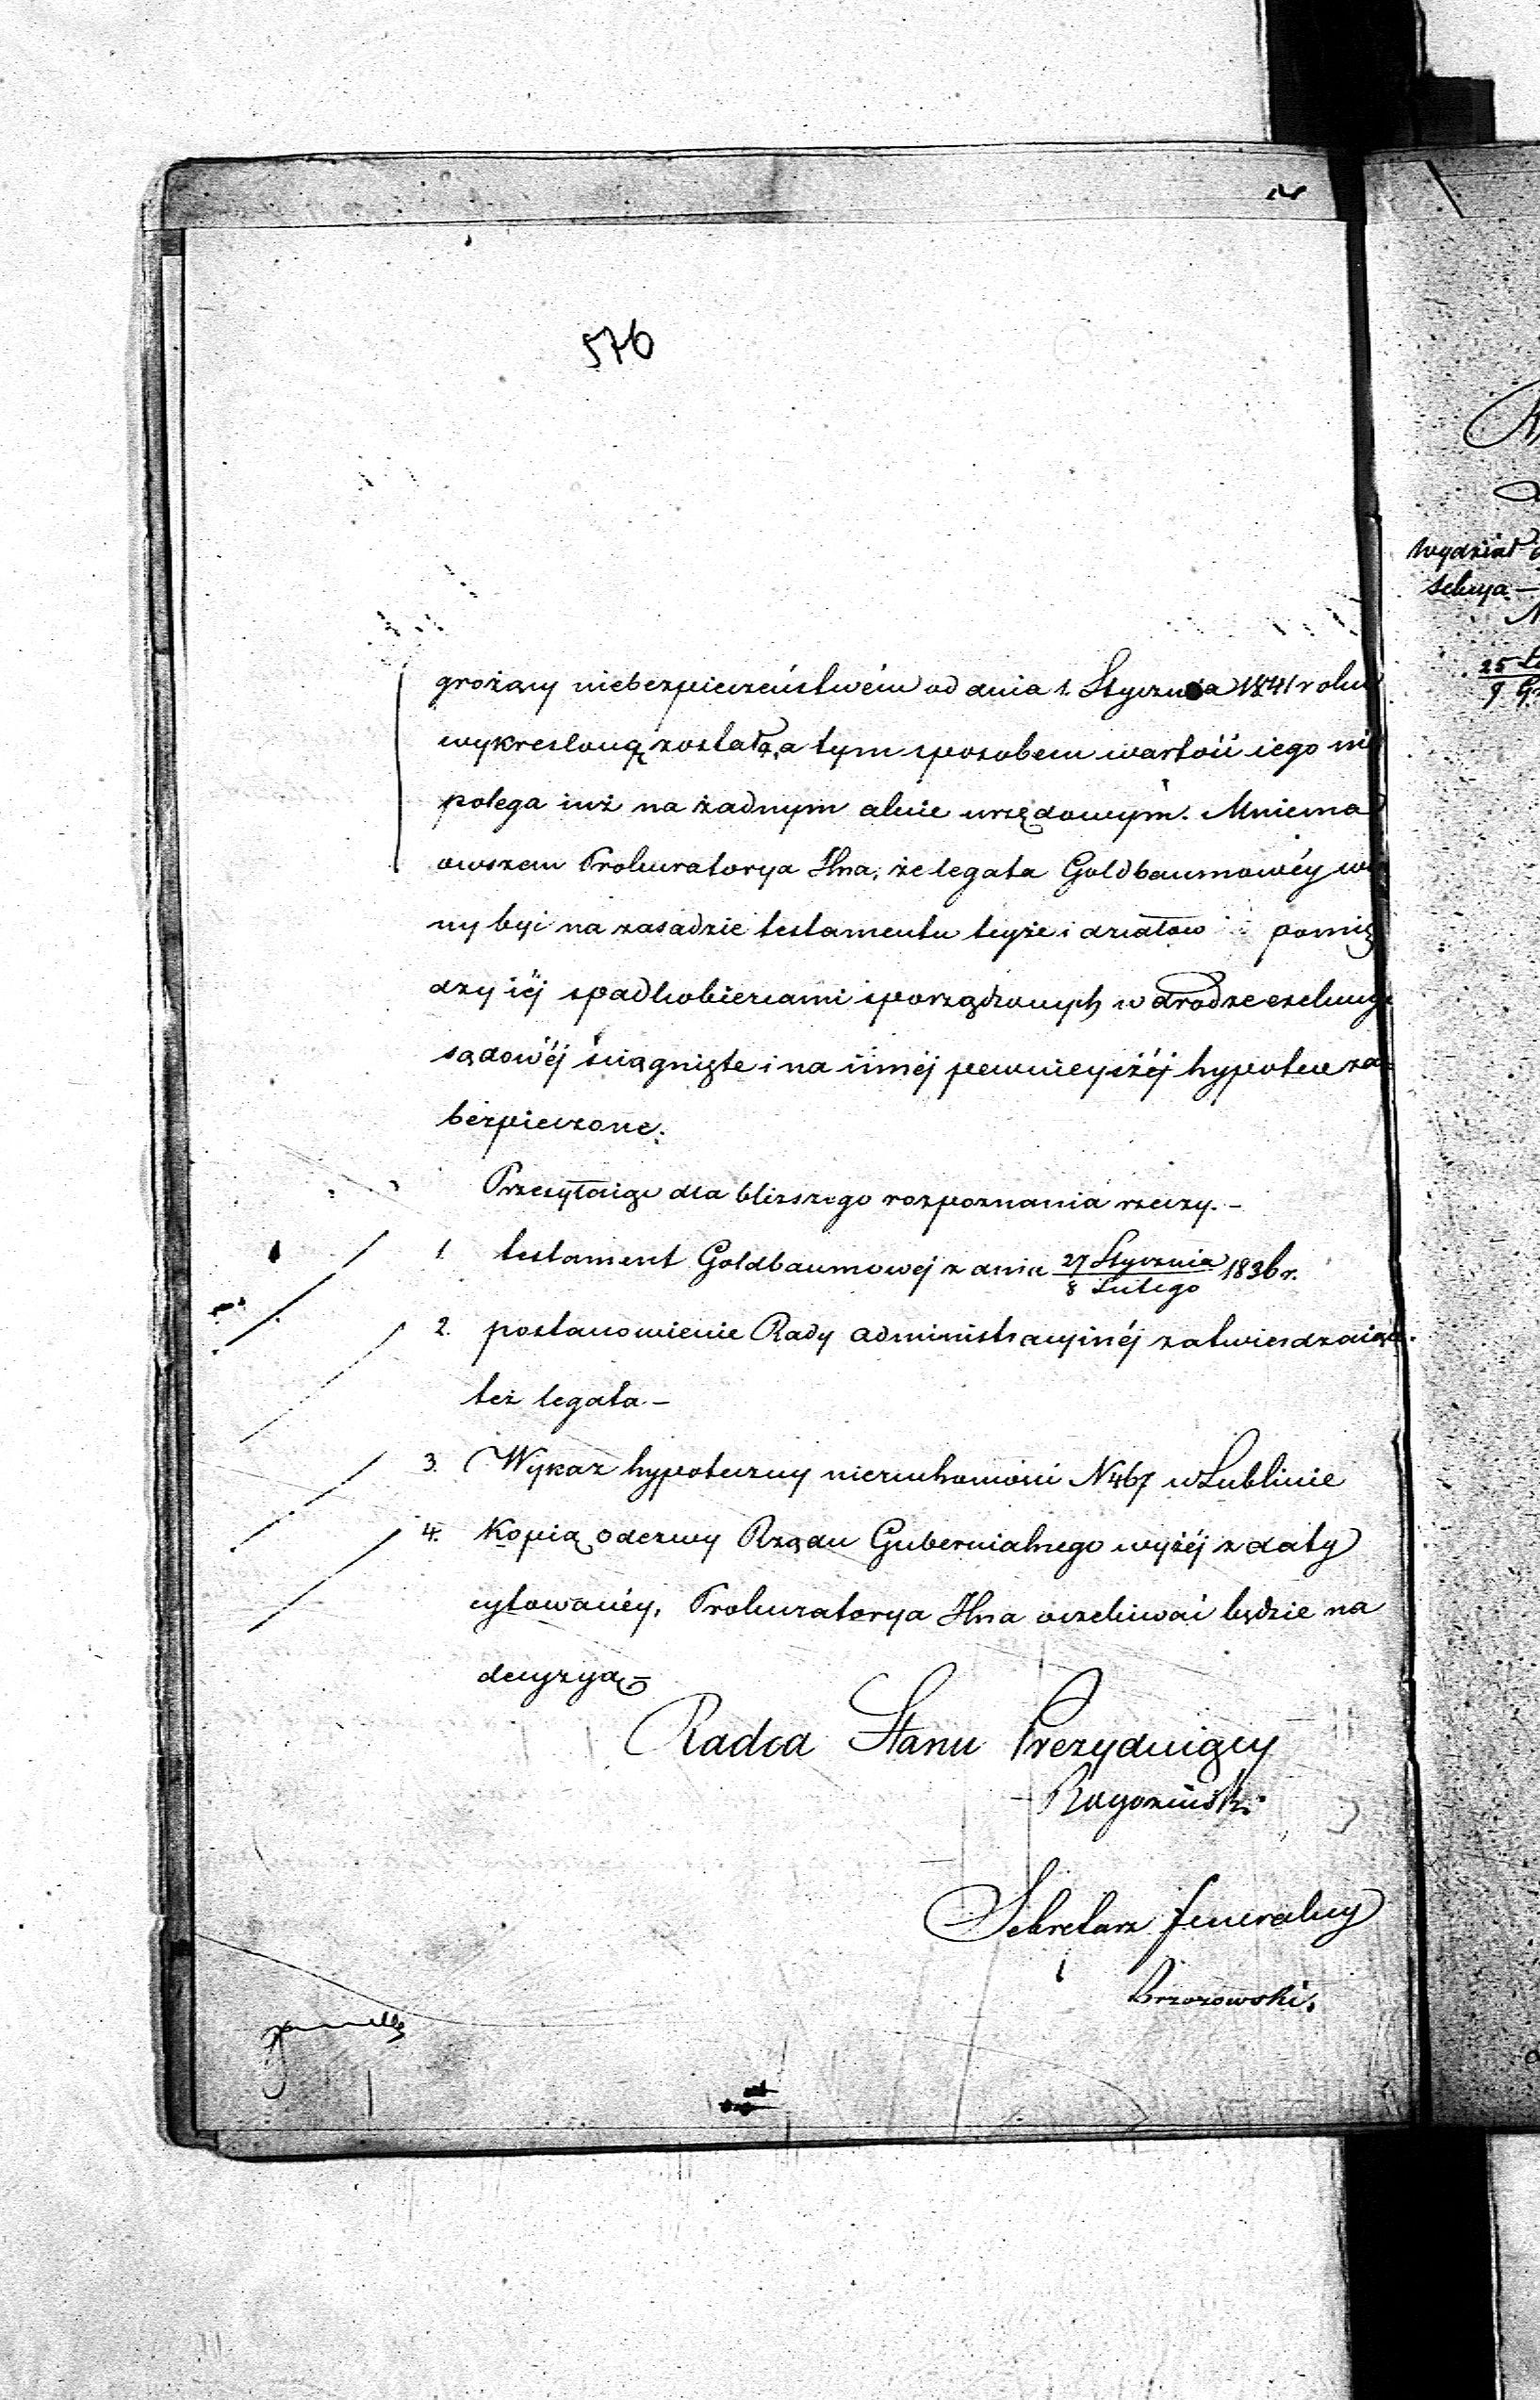 576
grożący niebezpieczeństwém od dnia 1. Stycznia 1841 roku
wykresloną została, a tym sposobem wartość iego nie
polega iuż na żadnym akcie urzędowym. Mniema
owszem Prokuratorya Jlna, że legata Goldbaumowéy win
ny być na zasadzie testamentu teyże i działów pomię
dzy iéj spadkobiercami sporządzonych w drodze exekucyi
sądowéj ściągnięte i na innéj pewnieyszéj hypotece za
bezpieczone.
Przesyłaiąc dla bliższego rozpoznania rzeczy. –
1. testament Goldbaumowej z dnia 27 Stycznia / 8 Lutego 1836 r.
2. postanowienie Rady administracyjnéj zatwierdzaiące
też legata –
3. Wykaz hypoteczny nieruchomości N 467 w Lublinie
4. Kopią odezwy Rządu Gubernialnego wyżéj z daty
cytowanéy, Prokuratorya Jlna oczekiwać będzie na
decyzyą –
Radca Stanu Prezyduiący
Sekretarz Jeneralny
Brzozowski.
Wydział
Sekcya –
N
25
9